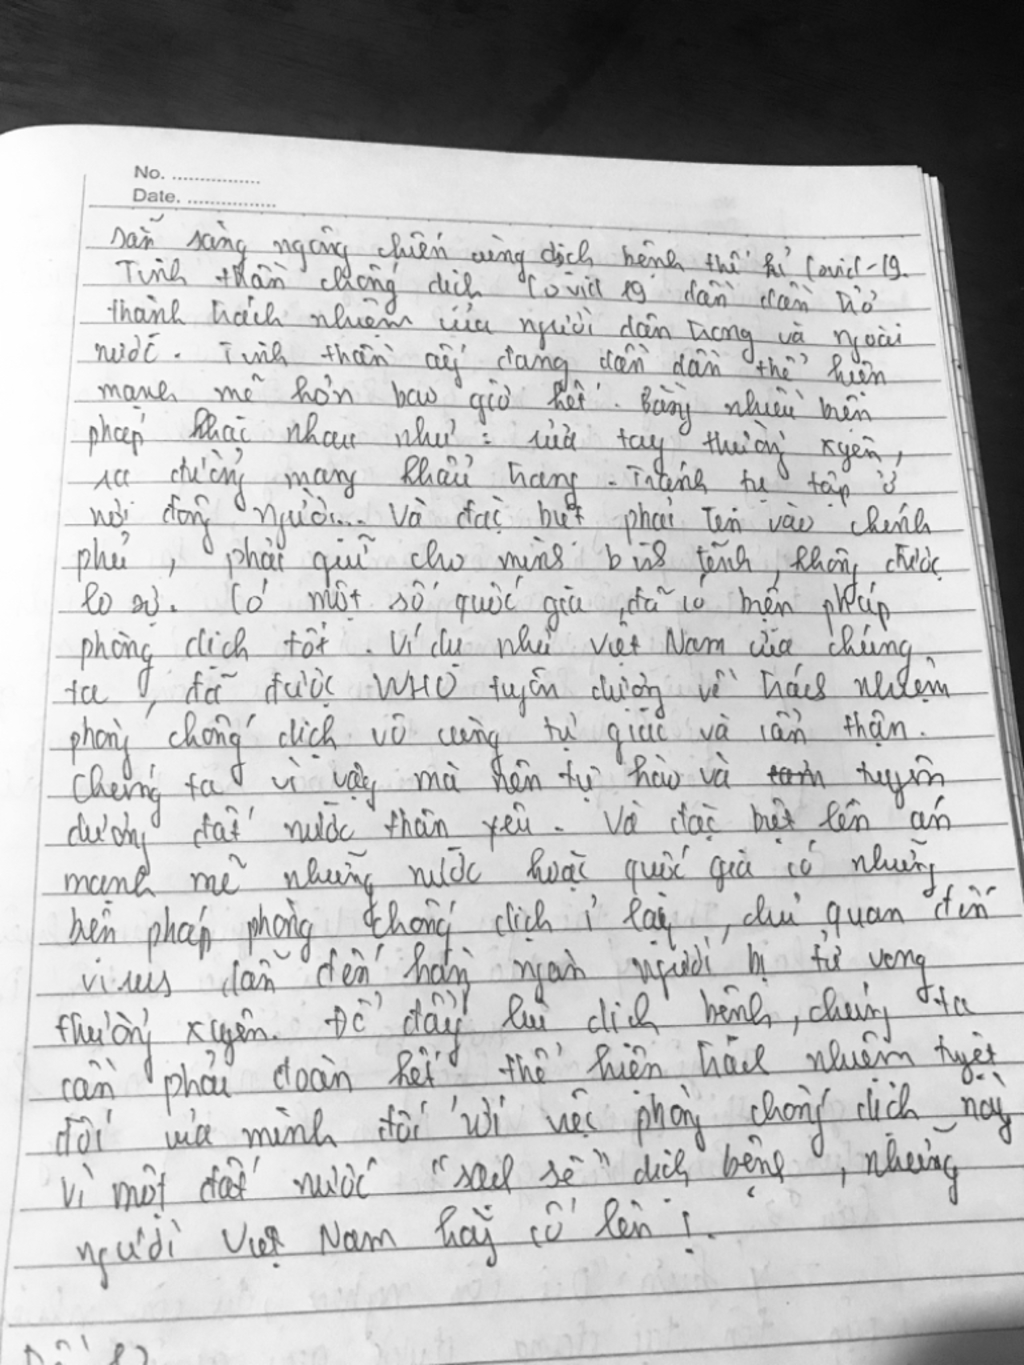 No. ................
Date. ................
sẵn sàng ngông chiến cùng dịch bệnh thế kỉ Covid-19.
Tinh thần chống dịch Covid 19 dần dần trở
thành trách nhiệm của người dân trong và ngoài
nước. Tinh thần ấy đang dần dần thể hiện
mạnh mẽ hơn bao giờ hết. Bằng nhiều biện
pháp khác nhau như: rửa tay thường xuyên,
ra đường mang khẩu trang. Tránh tụ tập ở
nơi đông người... Và đặc biệt phải tin vào chính
phủ, phải giữ cho mình bình tĩnh, không được
lo sợ. Có một số quốc gia, đã có biện pháp
phòng dịch tốt. Ví dụ như Việt Nam của chúng
ta, đã được WHO tuyên dương về trách nhiệm
phòng chống dịch vô cùng tự giác và cẩn thận.
Chúng ta vì vậy mà nên tự hào và tuyên
dương đất nước thân yêu. Và đặc biệt lên án
mạnh mẽ những nước hoặc quốc gia có những
biện pháp phòng chống dịch ỉ lại, chủ quan đến
virus dẫn đến hàng ngàn người bị tử vong
thường xuyên. Để đẩy lùi dịch bệnh, chúng ta
cần phải đoàn kết thể hiện trách nhiệm tuyệt
đối của mình đối với việc phòng chống dịch này
Vì một đất nước "sạch sẽ" dịch bệnh, những
người Việt Nam hãy cố lên!.